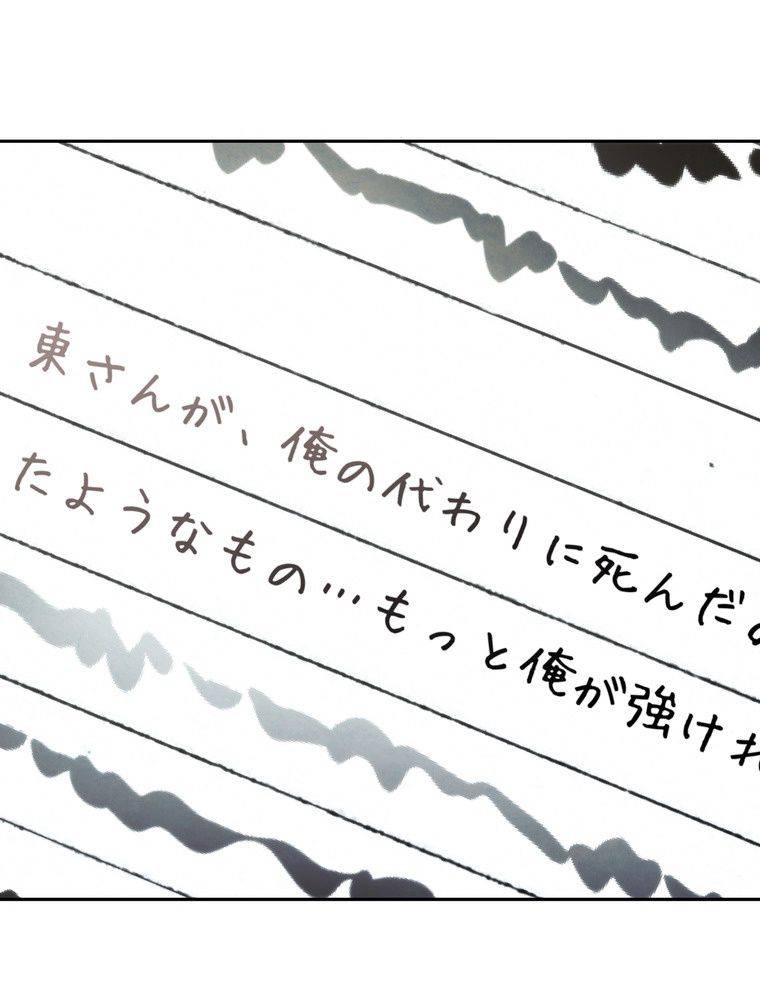 東さんが、俺の代わりに死んだの
たようなもの…もっと俺が強けれ